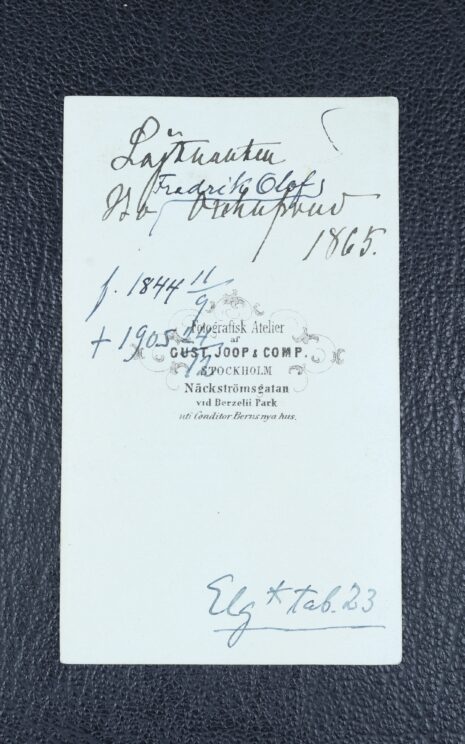 Löjtnanten
Fredrik Olof
1865.
f. 1844 11/9
+ 1905 24/12
Fotografisk Atelier
af
GUST. JOOP & COMP.
STOCKHOLM
Näckströmsgatan
vid Berzelii Park
uti Conditor Berns nya hus.
Elg * tab. 23